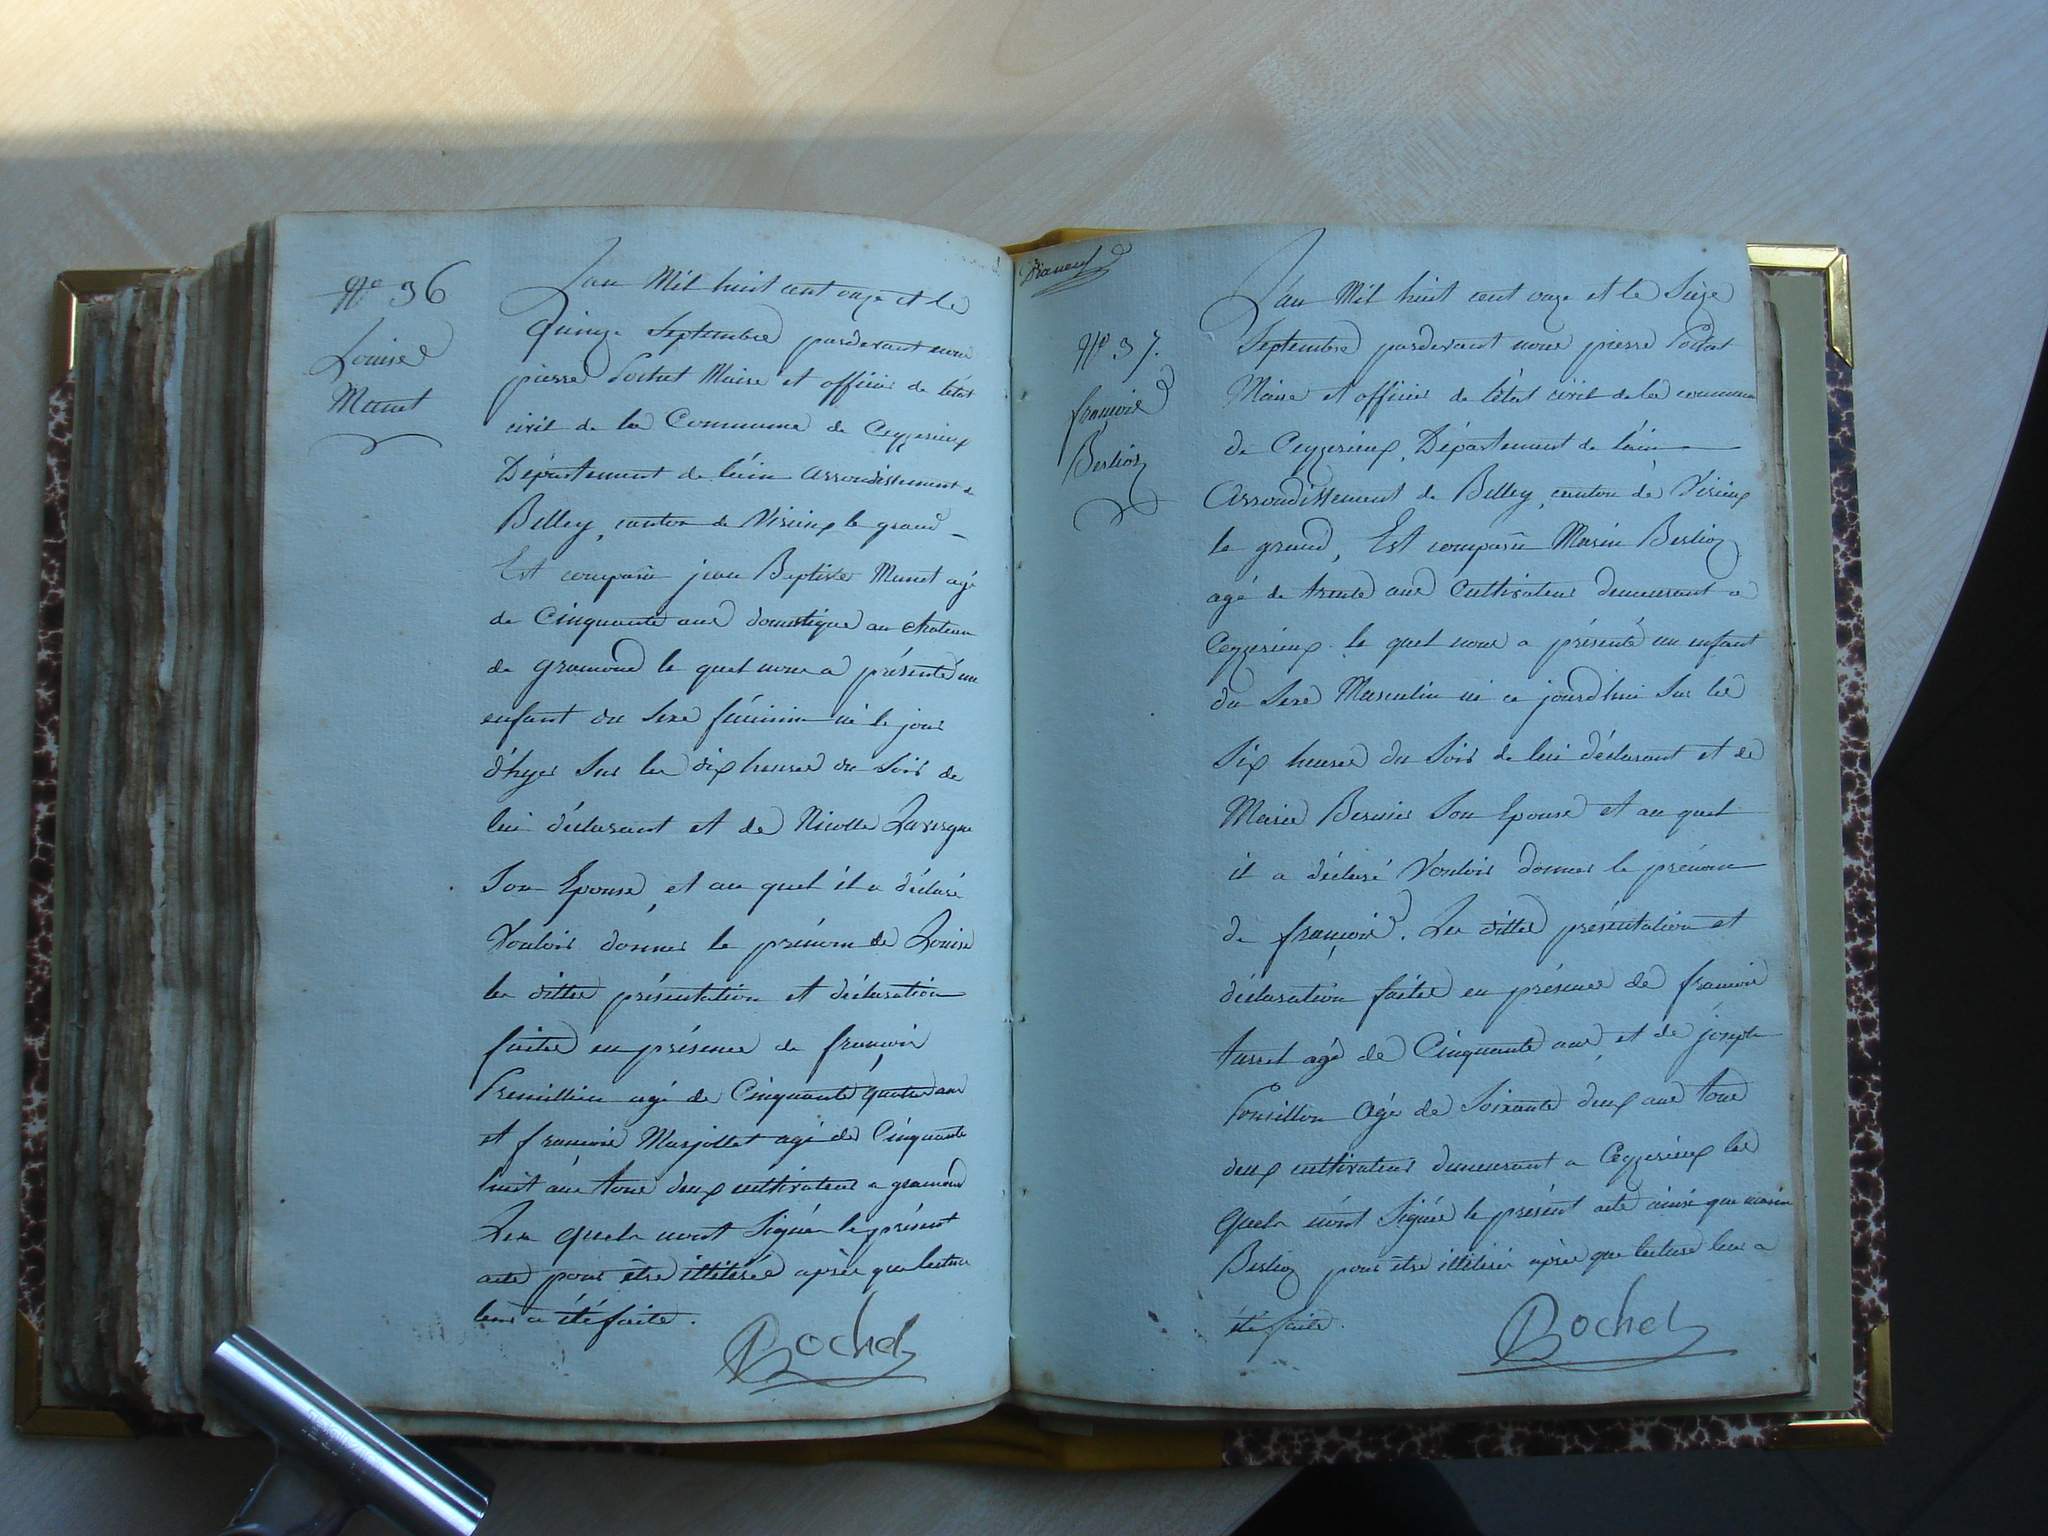 N.o 36
Louise
Manet
L'an Mil huit cent onze et le
Quinze Septembre pardevant nous
pierre Pochet Maire et officier de l'état
civil de la Commune de Ceyzerieux
Département de l'ain arrondissement de
Belley, canton de Virieux le grand
Est comparu jean Baptiste Manet agé
de Cinquante ans domestique au chateau
de gramond le quel nous a présenté un
enfant du Sexe féminin né le jour
d'hyer Sur les dix heures du Soir de
lui déclarant et de Nicolle Lavergne
Son Epouse, et au quel il a déclaré
Vouloir donner le prénom de Louise
les dittes présentation et déclaration
faites en présence de françois
Premillieu agé de Cinquante quatre ans
et françois Marjollet agé de Cinquante
huit ans tous deux cultivateurs a gramond
Les quels n'ont Signés le présent
acte pour être illitérés après que lecture
leur a été faite.
Pochet
N.o 37.
françois
Berlioz
L'an Mil huit cent onze et le Seize
Septembre pardevant nous pierre Pochet
Maire et officier de l'état civil de la commune
de Ceyzerieux, Département de l'ain
Arrondissement de Belley, canton de Virieux
le grand, Est comparu Marin Berlioz
agé de trente ans Cultivateur demeurant a
Ceyzerieux le quel nous a présenté un enfant
du Sexe Masculin né ce jourd'hui Sur les
Six heures du Soir de lui déclarant et de
Marie Bernier Son Epouse et au quel
il a déclaré Vouloir donner le prénom
de françois. Les dittes présentation et
déclaration faites en présence de françois
turret agé de Cinquante ans, et de joseph
Ponsillon Agé de Soixante deux ans tous
deux cultivateurs demeurant a Ceyzerieux les
quels n'ont Signés le présent acte ainsi que marin
Berlioz pour être illitérés après que lecture leur a
été faite.
Pochet